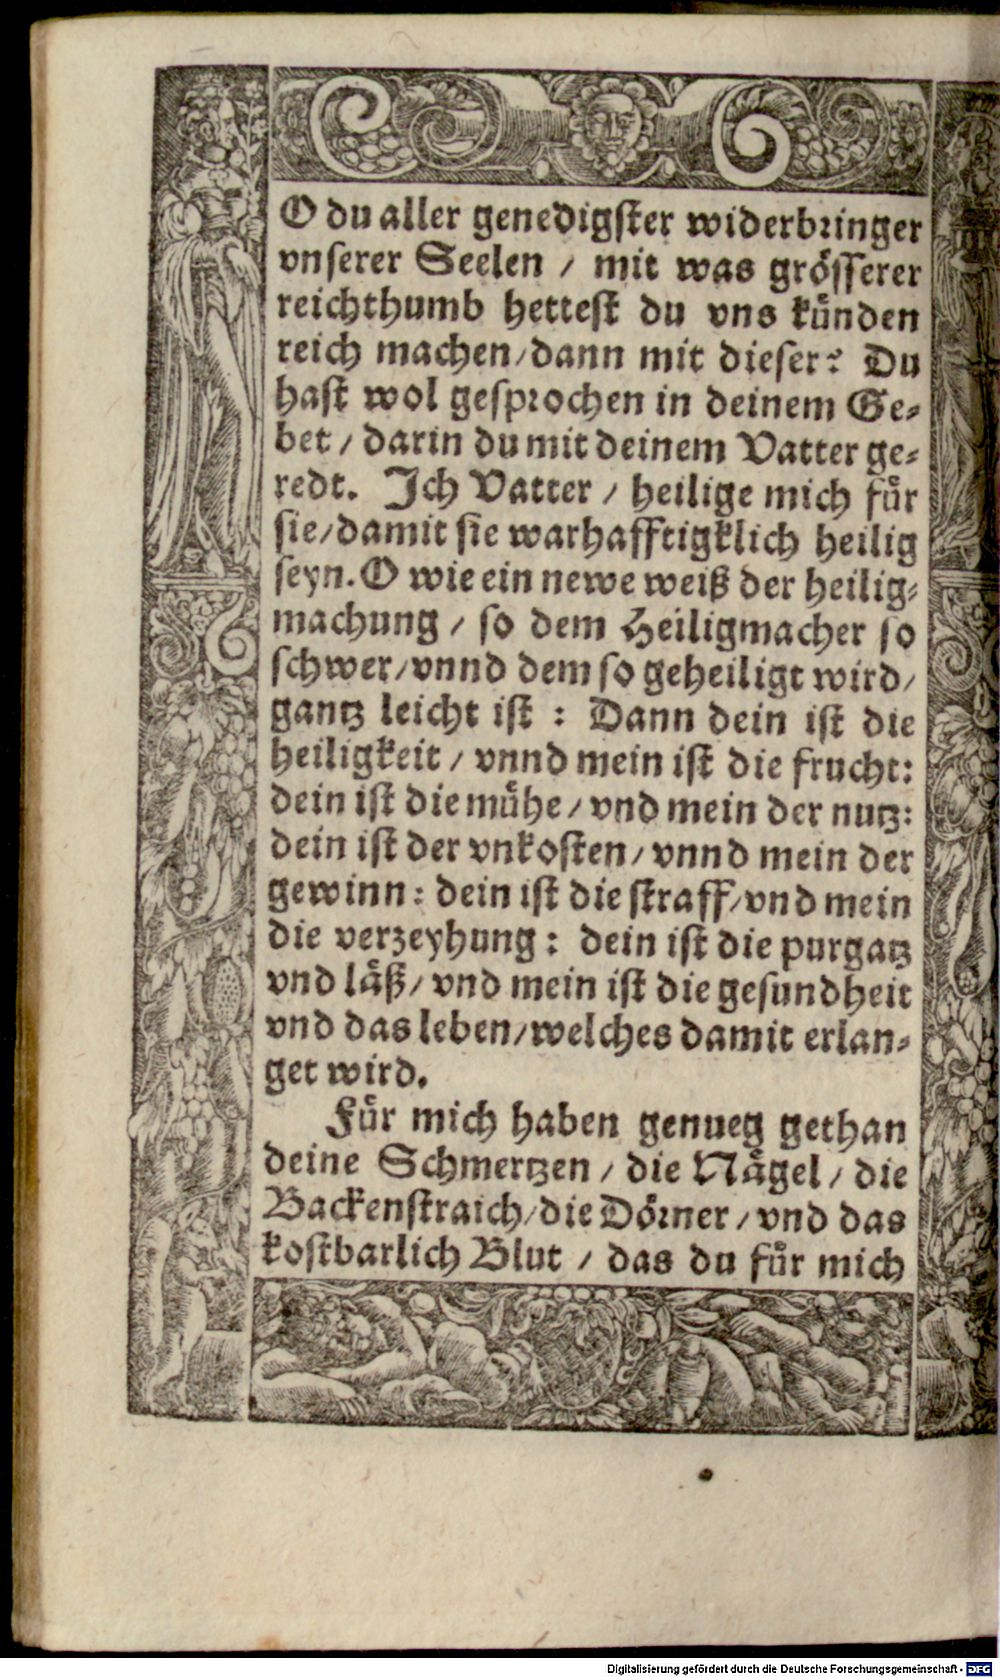 O du aller genedigster widerbringer
vnserer Seelen / mit was grösserer
reichthumb hettest du vns künden
reich machen/dann mit dieser? Du
hast wol gesprochen in deinem Ge-
bet / darin du mit deinem Vatter ge-
redt. Ich Vatter / heilige mich für
sie/damit sie warhafftigklich heilig
seyn. O wie ein newe weiß der heilig-
machung / so dem Heiligmacher so
schwer/vnnd dem so geheiligt wird/
gantz leicht ist : Dann dein ist die
heiligkeit / vnnd mein ist die frucht:
dein ist die mühe / vnd mein der nutz:
dein ist der vnkosten/ vnnd mein der
gewinn: dein ist die straff/vnd mein
die verzeyhung: dein ist die purgatz
vnd läß/ vnd mein ist die gesundheit
vnd das leben/welches damit erlan-
get wird.
Für mich haben genueg gethan
deine Schmertzen / die Nägel / die
Backenstraich/die Dörner / vnd das
kostbarlich Blut / das du für mich
Digitalisierung gefördert durch die Deutsche Forschungsgemeinschaft - DFG